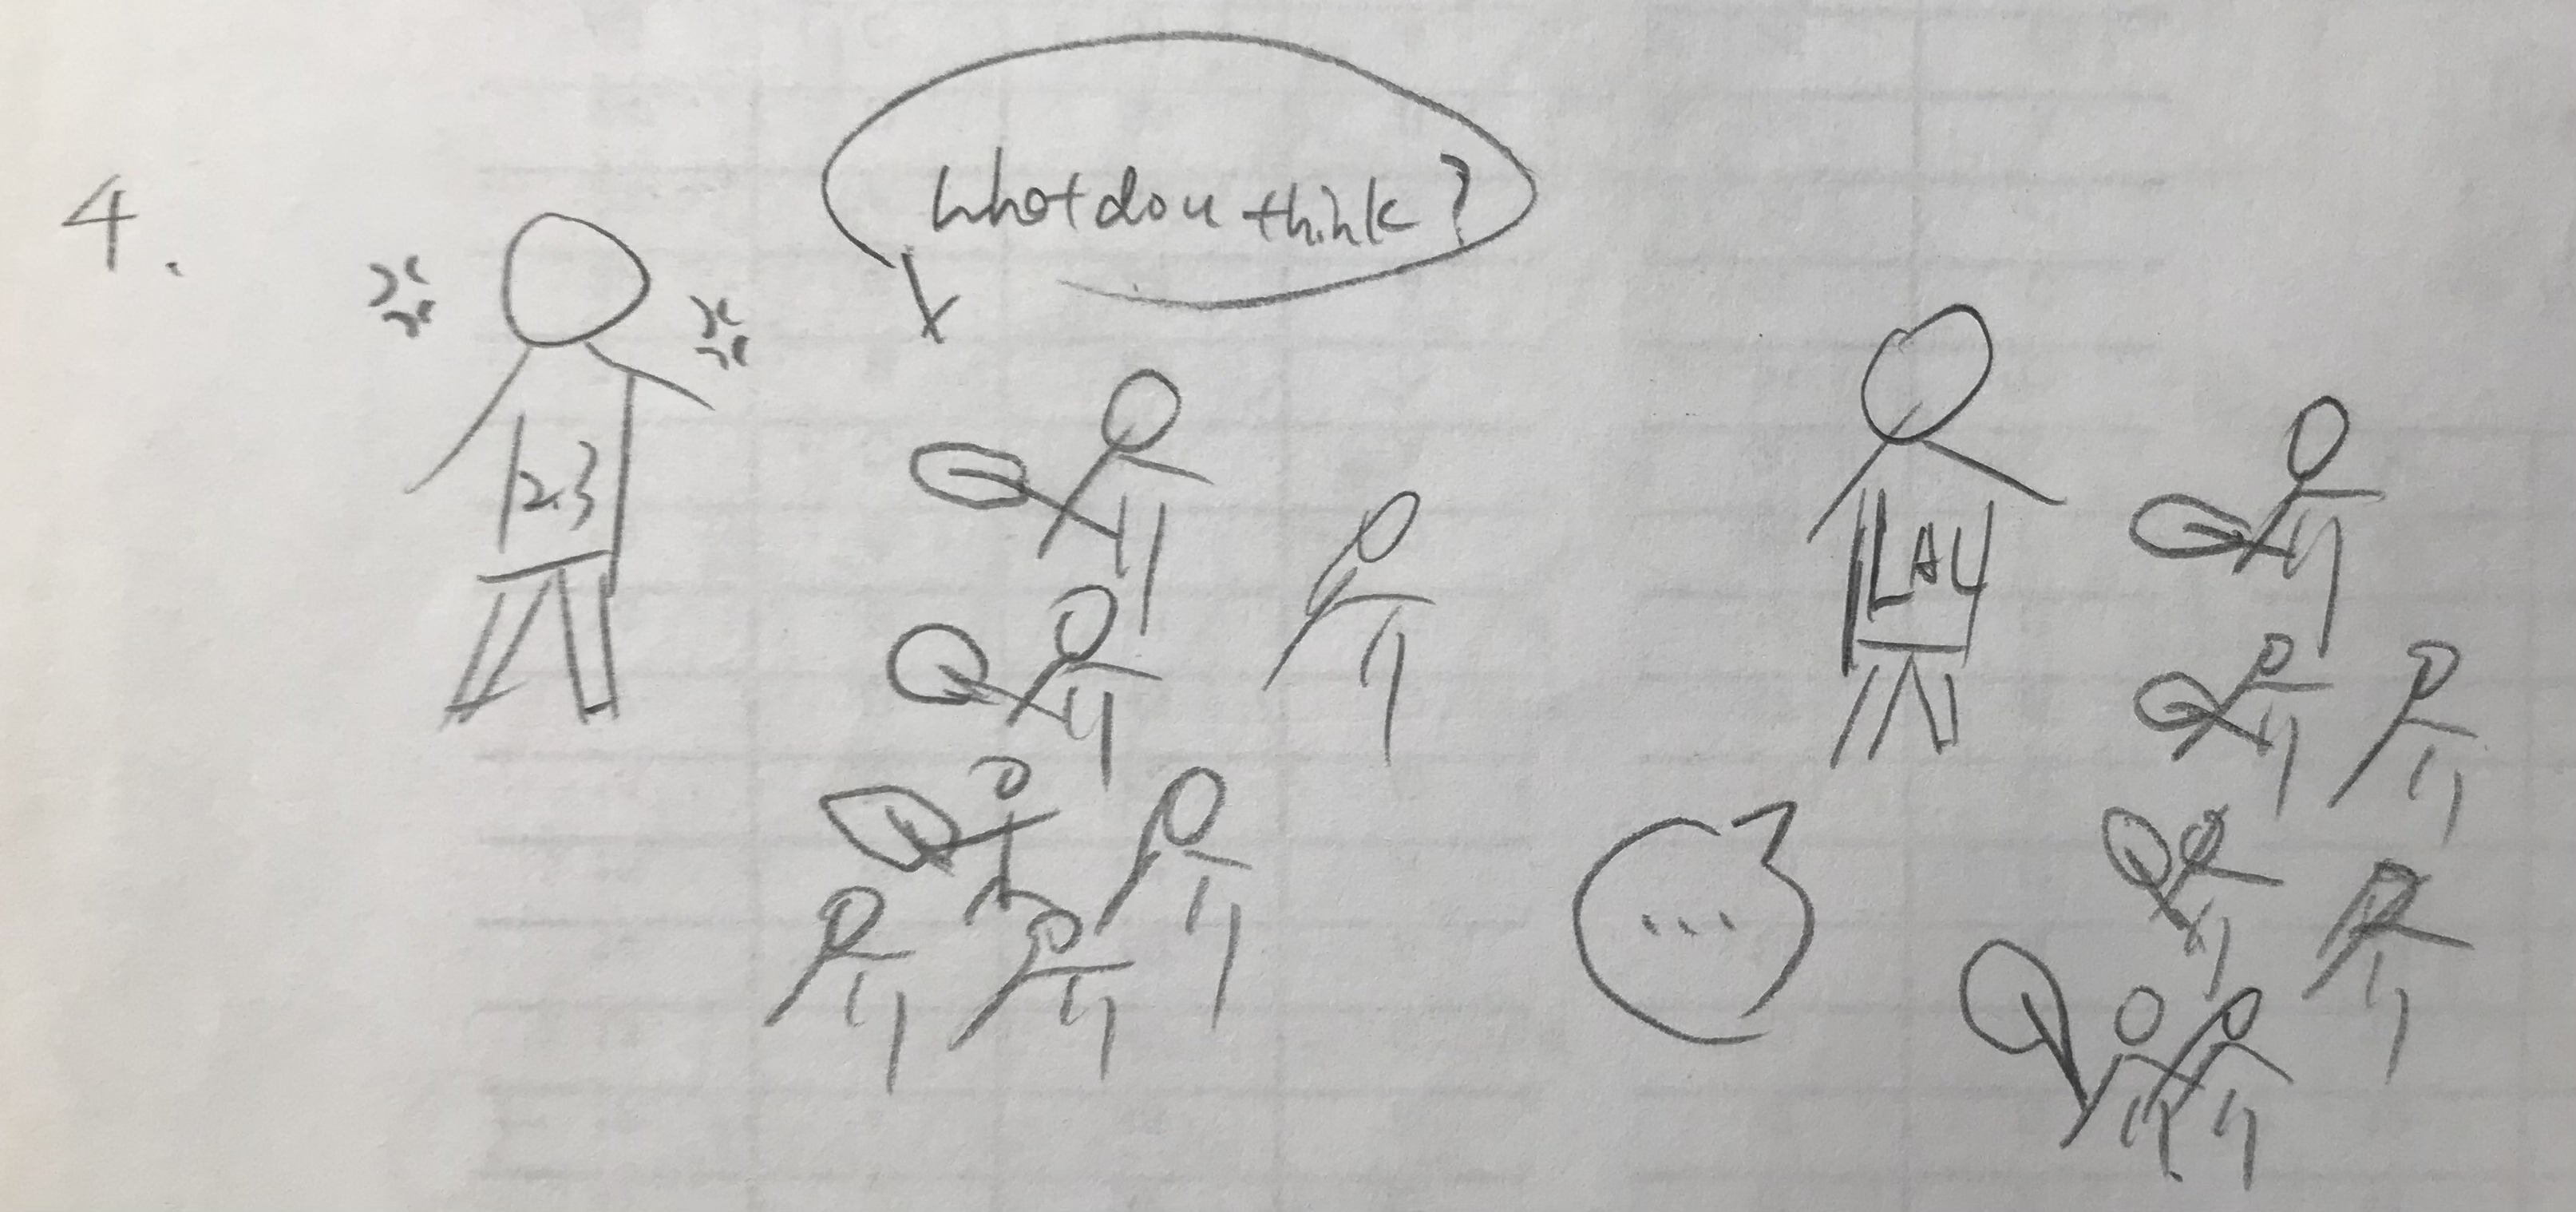 4.
What do u think?
123
LAU
...